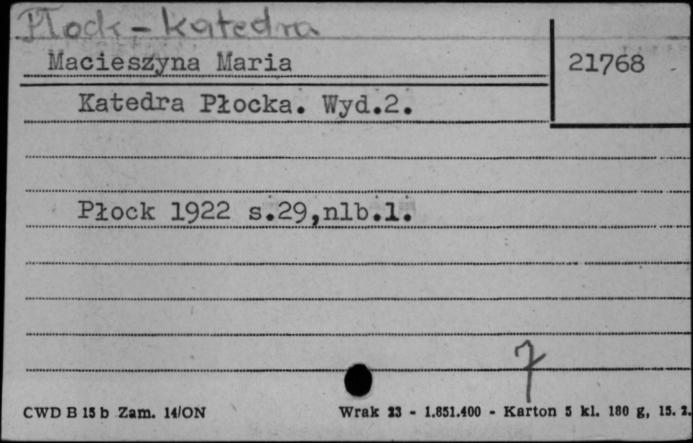 Płock - katedra
Macieszyna Maria
21768
Katedra Płocka. Wyd.2.
Płock 1922 s.29,nlb.1.
7
CWD B 15 b Zam. 14/ON
Wrak 23 - 1.851.400 - Karton 5 kl. 180 g, 15. 2.